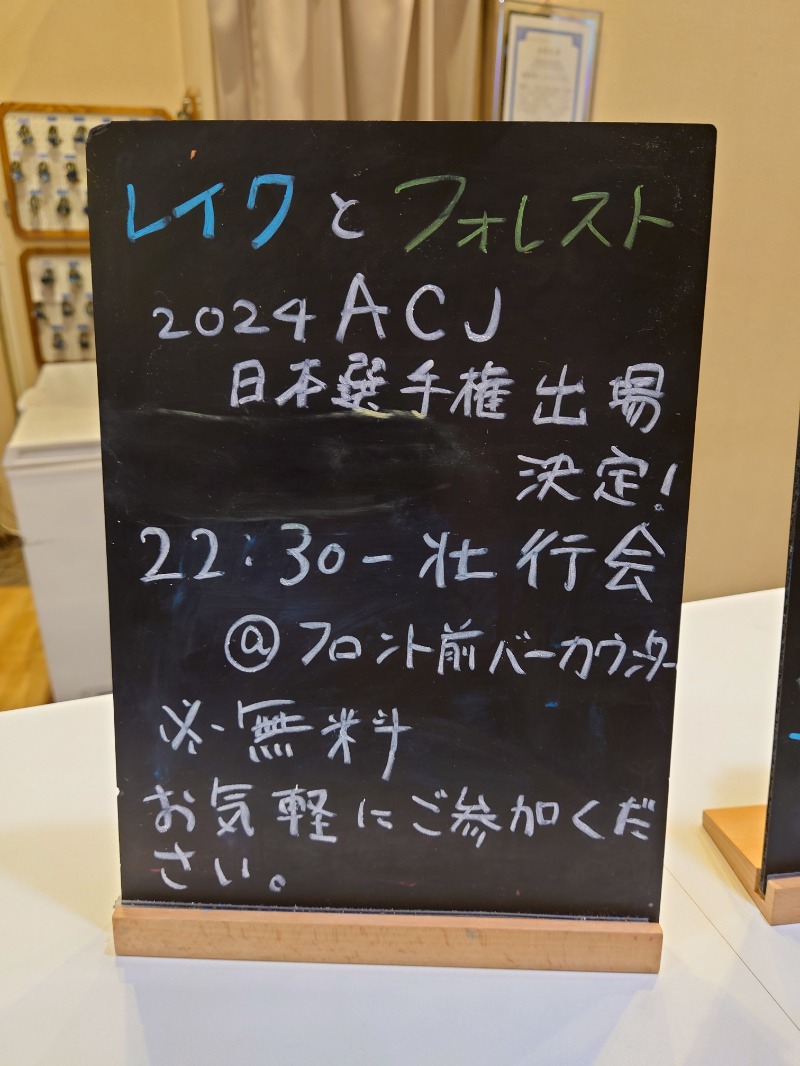 レイクとフォレスト
2024 ACJ
日本選手権出場
決定!
22:30-壮行会
@フロント前バーカウンター
※無料
お気軽にご参加くだ
さい。